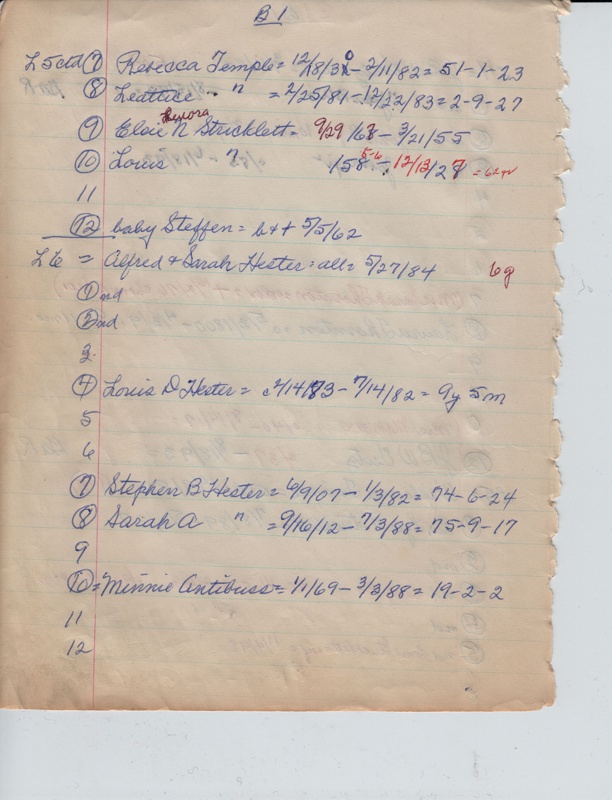 B1
L 5 ctd (7) Rebecca Temple = 12/18/30 - 2/11/82 = 51-1-23
(8) Leattice " = 2/25/81 - 12/22/83 = 2-9-27
(9) Elsie N Stricklett = 9/29/68 - 3/21/55
(10) Louis " 158 5-6 - 12/13/27 = 62gr
11
(12) baby Steffen = b+t 5/5/62
L 6 = Alfred & Sarah Hester = all = 5/27/84 6g
(1) nd
(2) nd
3
(4) Louis D Hester = c 2/14/73 - 7/14/82 = 9y 5m
5
6
(7) Stephen B Hester = 6/9/07 - 1/3/82 = 74-6-24
(8) Sarah A " = 9/16/12 - 7/3/88 = 75-9-17
9
(10) = Minnie Antibuss = 1/1/69 - 3/3/88 = 19-2-2
11
12